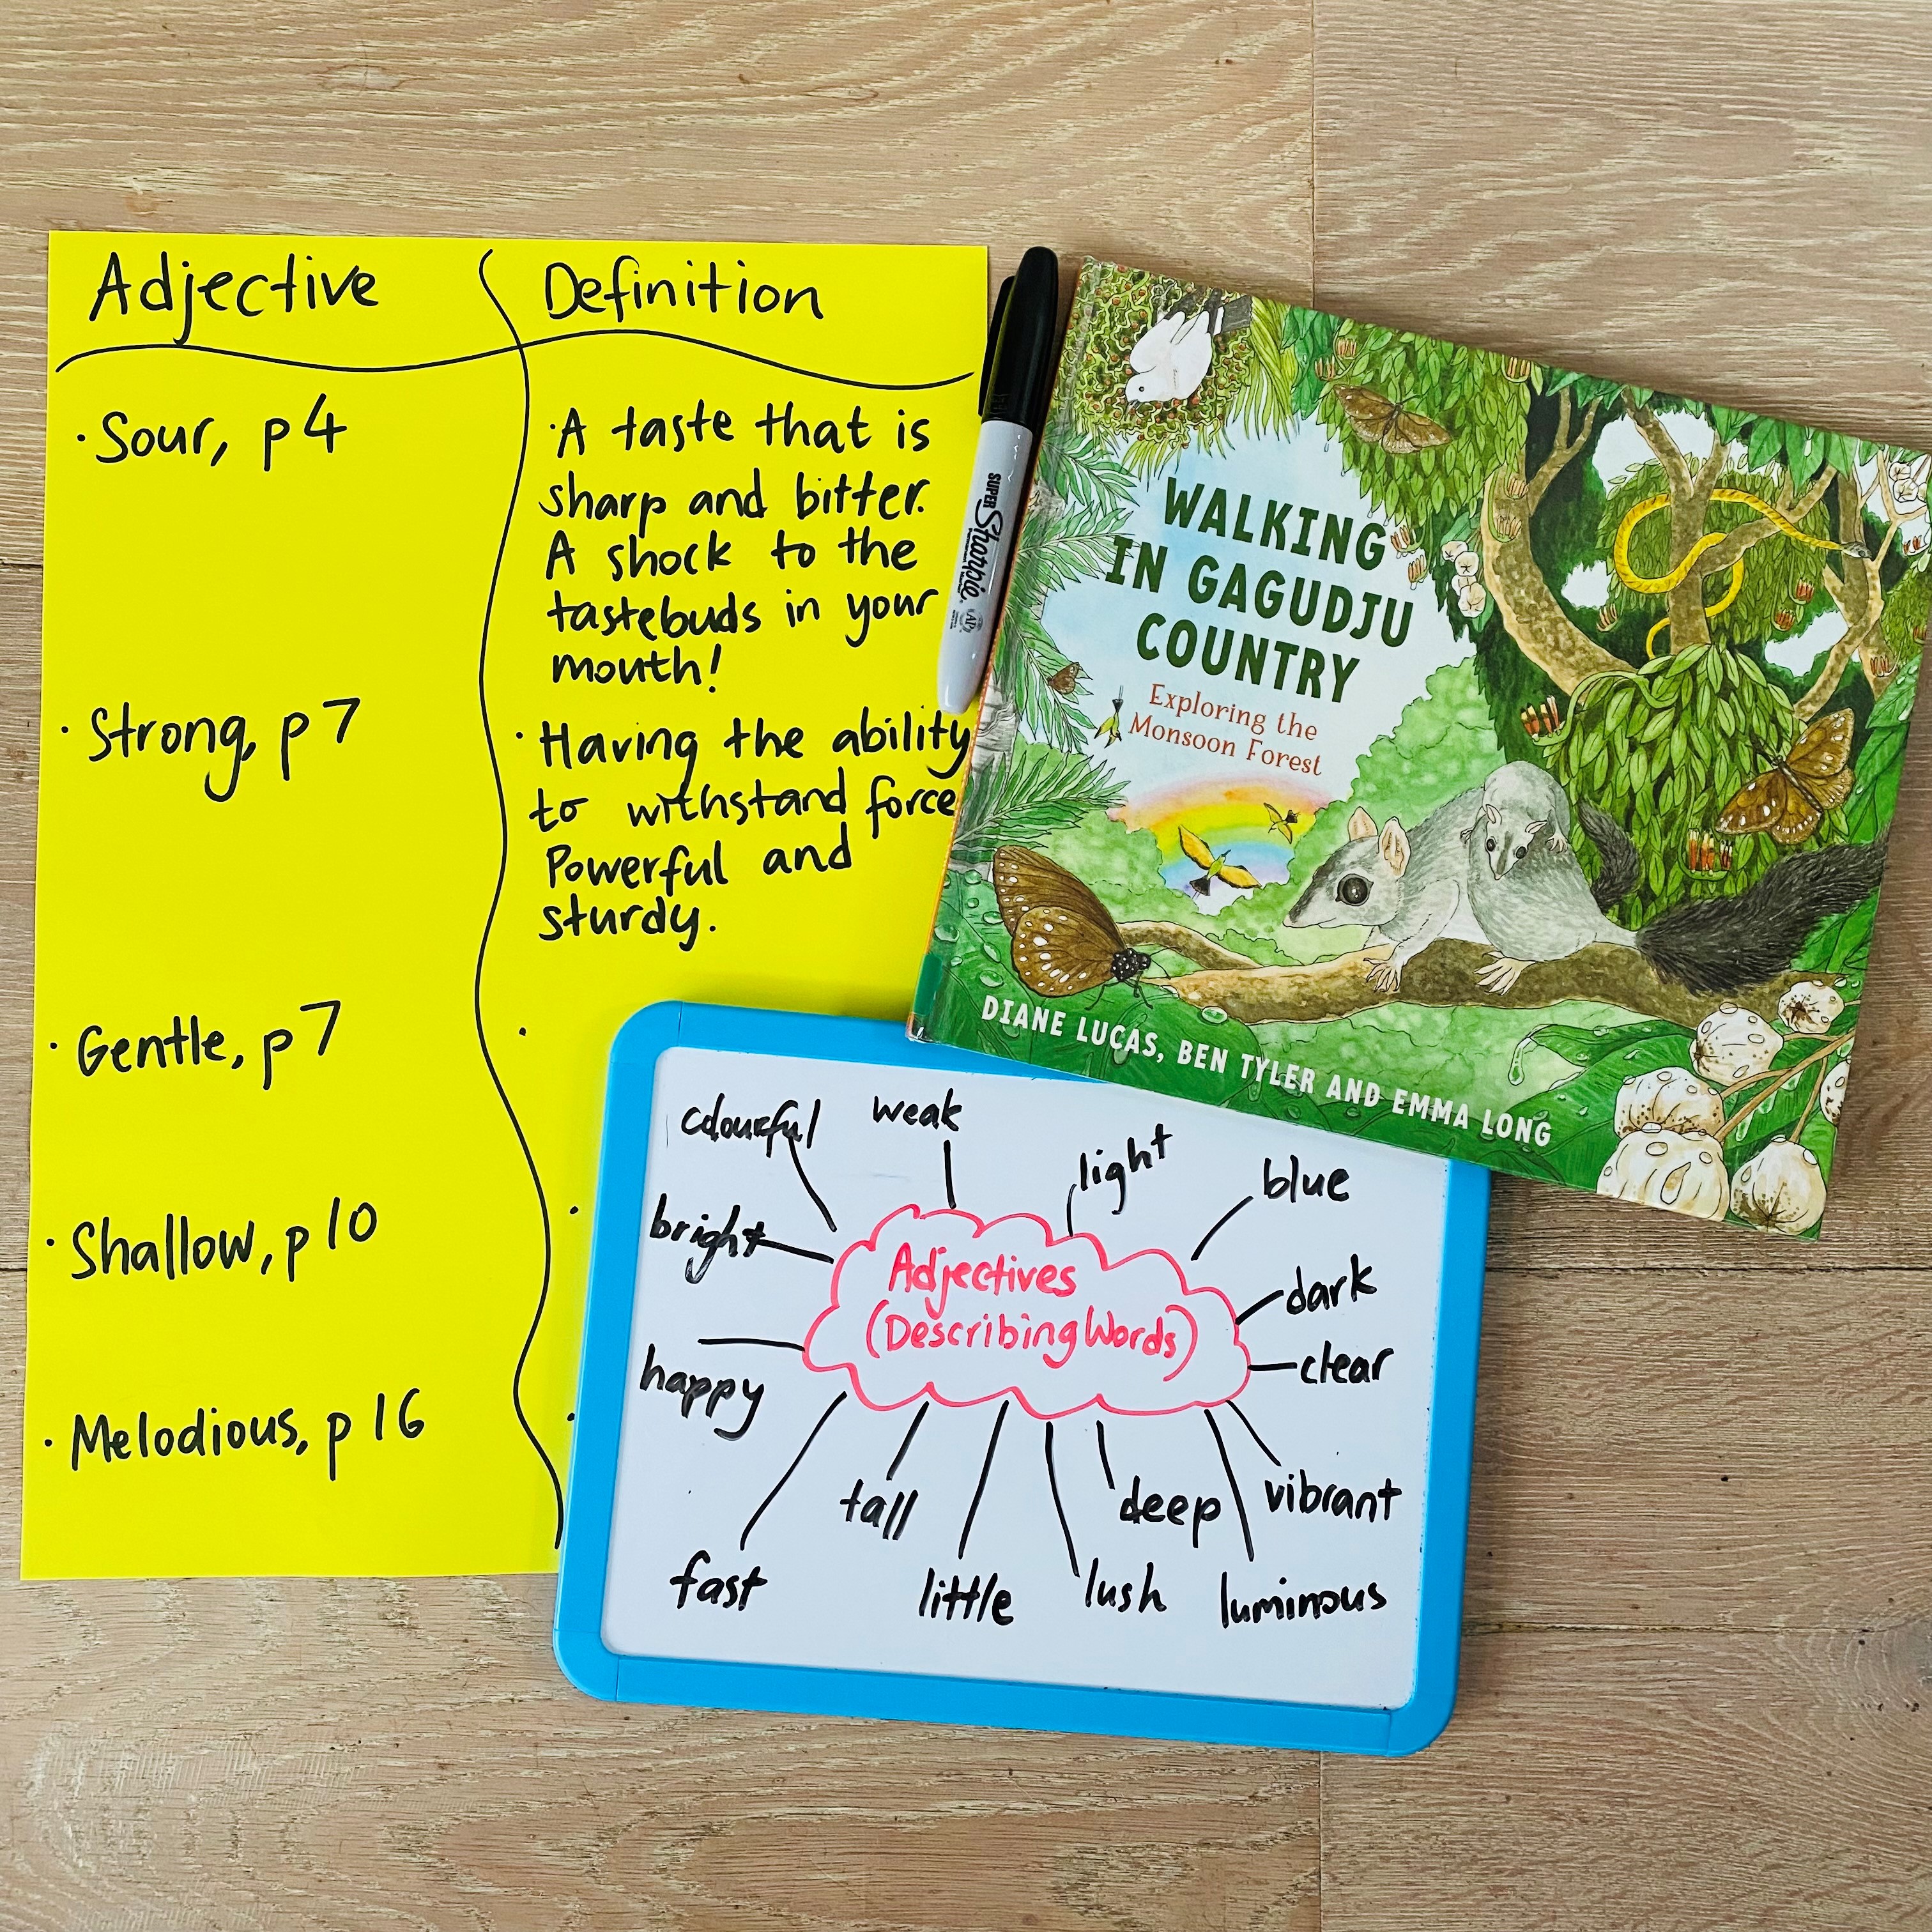 Adjective
Definition
· Sour, p 4
· A taste that is
sharp and bitter.
A shock to the
tastebuds in your
mouth!
· Strong, p 7
· Having the ability
to withstand force
Powerful and
sturdy.
· Gentle, p 7
·
· Shallow, p 10
·
· Melodious, p 16
·
SUPER
Sharpie
AP
WALKING
IN GAGUDJU
COUNTRY
Exploring the
Monsoon Forest
DIANE LUCAS, BEN TYLER AND EMMA LONG
Adjectives
(Describing Words)
colourful
weak
light
blue
bright
dark
clear
happy
vibrant
deep
tall
fast
little
lush
luminous